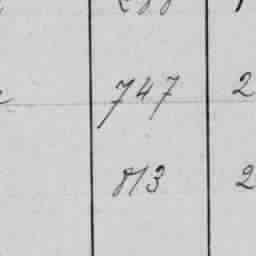 747 2
813 2